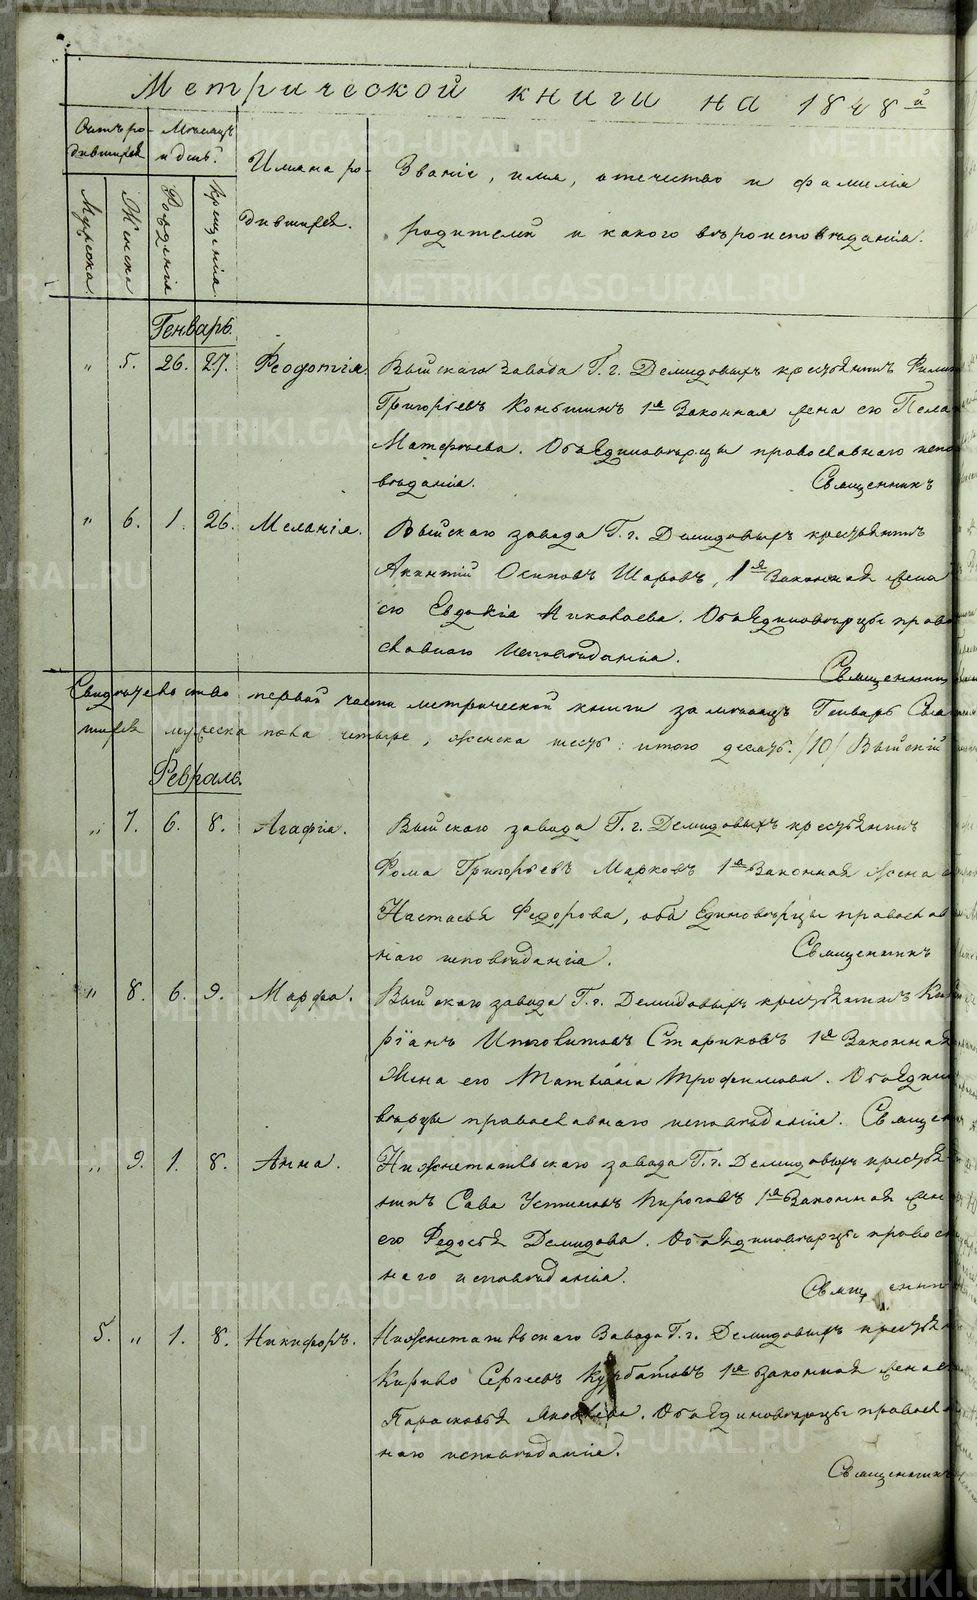 Метрической книги на 1848й
Счетъ ро- Мѣсяцъ
дившихся и день.
Имяна ро- Званіе, имя, отечество и фамилія
дившихся. родителей и какого вѣроисповѣданія.
Мужеска. Женска Рожденія Крещенія
Генварь.
" 5. 26. 27. Феодотія. Выйскаго завода Г. г. Демидовыхъ крестьянинъ
Григорьевъ Коньшинъ 1я Законная жена его
Матфѣева. Оба Единовѣрцы православнаго испо
вѣданія. Священникъ
" 6. 1. 26. Меланія. Выйскаго завода Г. г. Демидовыхъ крестьянинъ
Акинтій Осиповъ Шаровъ, 1я Законная жена
его Евдокія Николаева. Оба Единовѣрцы право
славнаго исповѣданія.
Священникъ
Свидѣтельство первой части метрической книги за мѣсяцъ Генварь
мужеска пола четыре, женска шесть: итого десять. /10/ Выйскій
Февраль.
" 7. 6. 8. Агафія. Выйскаго завода Г. г. Демидовыхъ крестьянинъ
Фома Григорьевъ Марковъ 1я Законная жена
Настасья Федорова, оба Единовѣрцы православ
наго исповѣданія. Священникъ
" 8. 6. 9. Марфа. Выйскаго завода Г. г. Демидовыхъ крестьянинъ Кип
ріанъ Стариковъ 1я Законная
жена его Татьяна Трофимова. Оба Едино
вѣрцы православнаго исповѣданія. Священ
" 9. 1. 8. Анна. Нижнетагильскаго завода Г. г. Демидовыхъ крестья
нинъ Сава Устиновъ Пироговъ 1я Законная жен
его Федосья Демидова. Оба Единовѣрцы правосл
наго исповѣданія.
Священни
5. " 1. 8. Никифоръ. Нижнетагильскаго Завода Г. г. Демидовыхъ крестья
Сергеевъ Курбатовъ 1я законная жена
Парасковья Яковлева. Оба Единовѣрцы правосл
наго исповѣданія.
Священникъ
METRIKI.GASO-URAL.RU